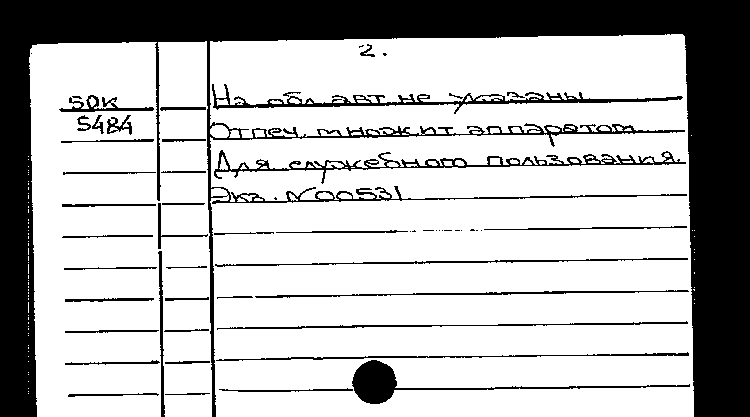 2.
50К На обл. авт. не указаны
5484 Отпеч. множит аппаратом
Для служебного пользования.
Экз. N00531